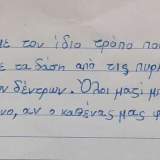 με τον ίδιο τρόπο που
ε τα δάση από τις πυρκ
ων δέντρων. Όλοι μαζί μπ
νο, αν ο καθένας μας φ